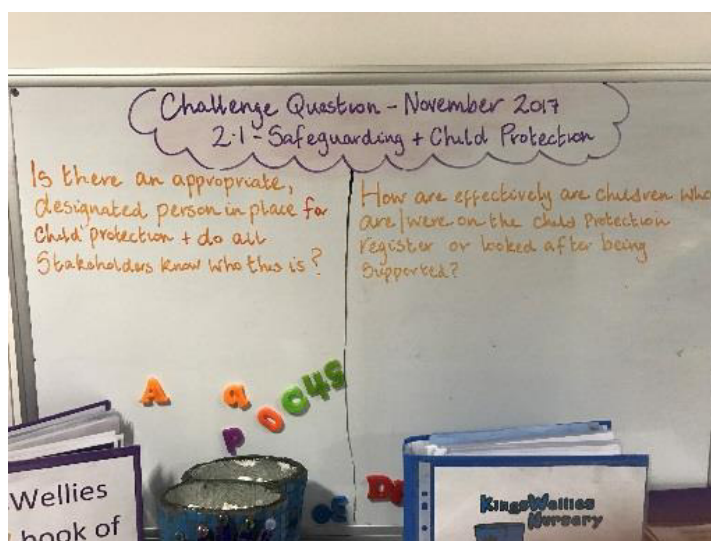 Challenge Question - November 2017
2.1 - Safeguarding + Child Protection
Is there an appropriate,
designated person in place for
Child protection + do all
Stakeholders know who this is?
How are effectively are children who
are/were on the Child Protection
register or looked after being
Supported?
A a
P O C U S
Wellies
book of
KingsWellies
Nursery